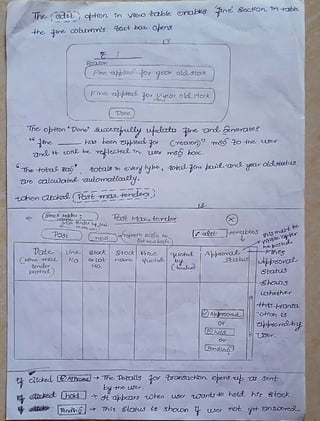 The (edit) option in view table enables 'fine' section in table
the fine column's text box opens
₹ !
Reason
Fine applied for year old stock
Fine applied for 1/2 year old stock
Done
The option "Done" successfully updates fine and generates
"fine ____ has been applied for (reason)" msg to the user
and it will be reflected in user msg box.
"The total bag", totals in every lots, total fine paid and year old status
are calculated automatically.
when clicked (Post max tender)
Post Max. tender
Post
new
Edit
enables
Date
Line No
Stock or Lot No.
Stock name
Price Quoted
Quoted by (tender)
Approval Status
Approval status shows whether this transaction is approved by user.
Approved
or
Hold
or
Pending
If clicked Approved → The Details for transaction opens up as sent
by the user.
If clicked hold → It appears when user wants to hold his stock
Pending → This status is shown if user not yet answered